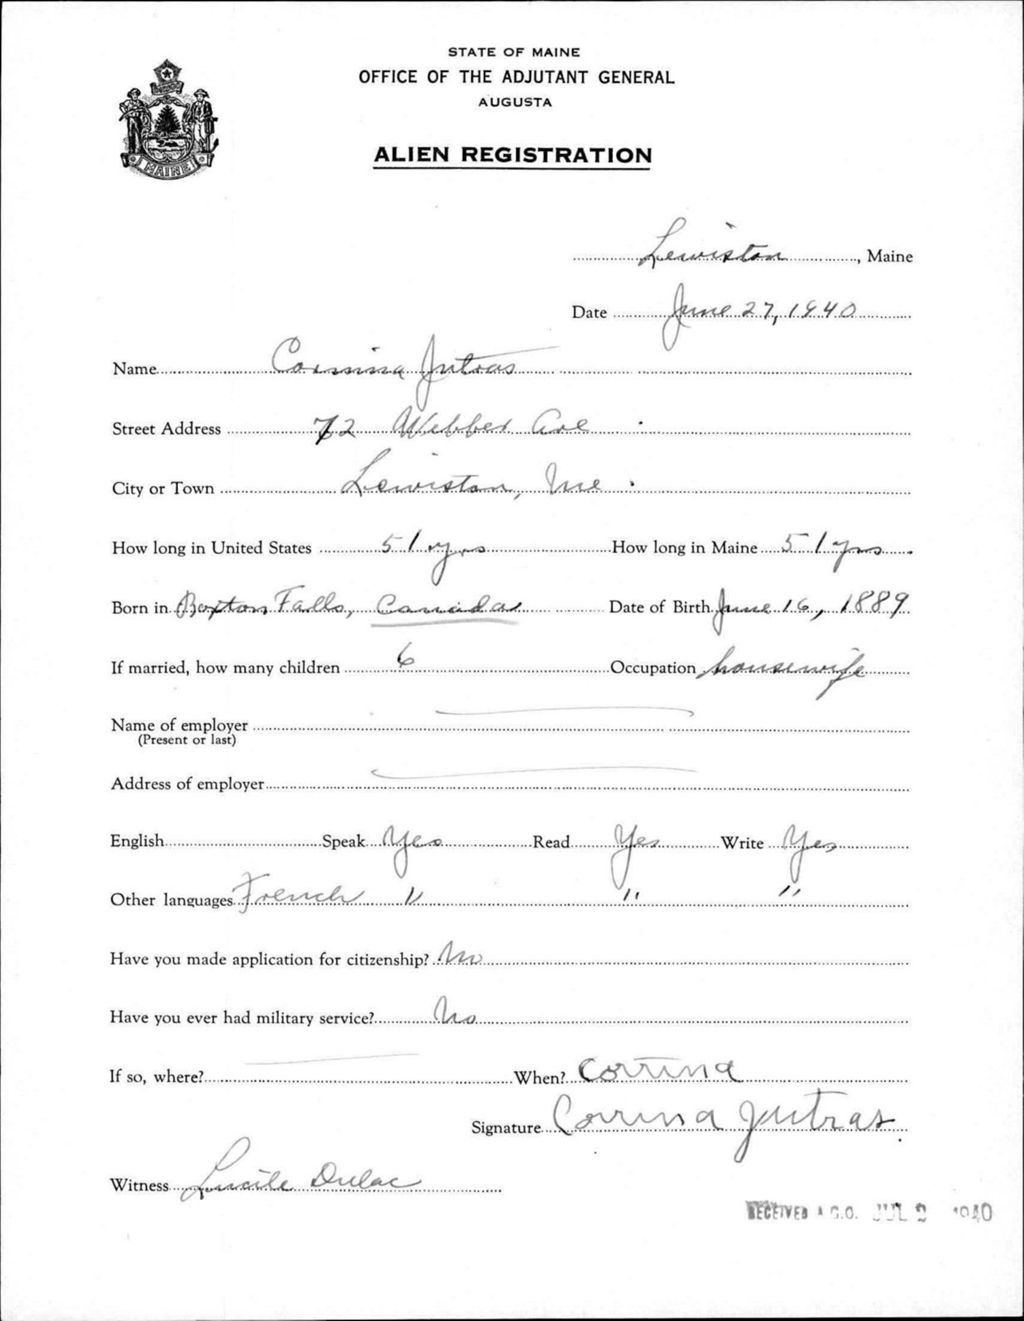 STATE OF MAINE
OFFICE OF THE ADJUTANT GENERAL
AUGUSTA
ALIEN REGISTRATION
MAINE
Lewiston, Maine
Date June 27, 1940
Name Corinna Jutras
Street Address 72 Webber Ave
City or Town Lewiston, Me
How long in United States 51 yrs How long in Maine 51 yrs
Born in Roxton Falls, Canada Date of Birth June 16, 1889
If married, how many children 6 Occupation housewife
Name of employer
(Present or last)
Address of employer
English Speak Yes Read Yes Write Yes
Other languages French " " "
Have you made application for citizenship? No
Have you ever had military service? No
If so, where? When? Corrina
Signature Corrina Jutras
Witness Lucile Dulac
RECEIVED A.G.O. JUL 2 1940